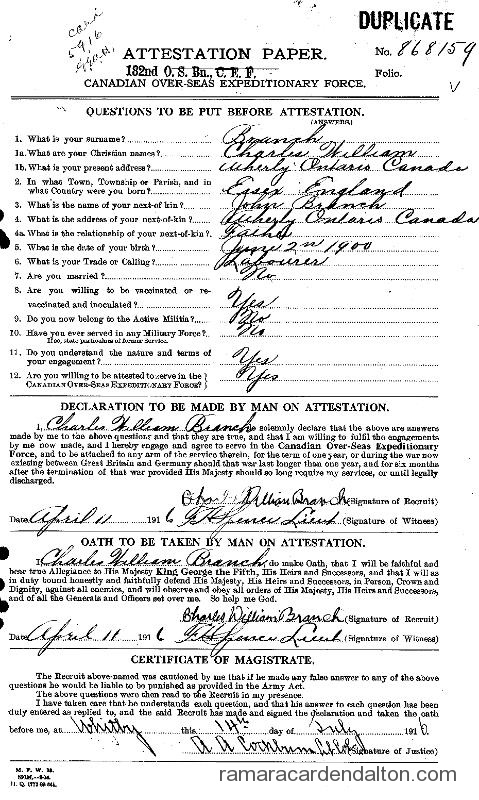 DUPLICATE
ATTESTATION PAPER.
No. 868159
182nd O. S. Bn., C. E. F.
Folio.
CANADIAN OVER-SEAS EXPEDITIONARY FORCE.
QUESTIONS TO BE PUT BEFORE ATTESTATION.
(ANSWERS)
1. What is your surname? Branch
1a. What are your Christian names? Charles William
1b. What is your present address? Atherly Ontario Canada
2. In what Town, Township or Parish, and in
what Country were you born? Essex England
3. What is the name of your next-of-kin? John Branch
4. What is the address of your next-of-kin? Atherly Ontario Canada
4a. What is the relationship of your next-of-kin? Father
5. What is the date of your birth? June 2nd 1900
6. What is your Trade or Calling? Labourer
7. Are you married? No
8. Are you willing to be vaccinated or re-
vaccinated and inoculated? Yes
9. Do you now belong to the Active Militia? No
10. Have you ever served in any Military Force? No
If so, state particulars of former Service.
11. Do you understand the nature and terms of
your engagement? Yes
12. Are you willing to be attested to serve in the
CANADIAN OVER-SEAS EXPEDITIONARY FORCE? Yes
DECLARATION TO BE MADE BY MAN ON ATTESTATION.
I, Charles William Branch, do solemnly declare that the above are answers
made by me to the above questions and that they are true, and that I am willing to fulfil the engagements
by me now made, and I hereby engage and agree to serve in the Canadian Over-Seas Expeditionary
Force, and to be attached to any arm of the service therein, for the term of one year, or during the war now
existing between Great Britain and Germany should that war last longer than one year, and for six months
after the termination of that war provided His Majesty should so long require my services, or until legally
discharged.
William Branch (Signature of Recruit)
Date April 11 1916 Lieut (Signature of Witness)
OATH TO BE TAKEN BY MAN ON ATTESTATION.
I, Charles William Branch, do make Oath, that I will be faithful and
bear true Allegiance to His Majesty King George the Fifth, His Heirs and Successors, and that I will as
in duty bound honestly and faithfully defend His Majesty, His Heirs and Successors, in Person, Crown and
Dignity, against all enemies, and will observe and obey all orders of His Majesty, His Heirs and Successors,
and of all the Generals and Officers set over me. So help me God.
Charles William Branch (Signature of Recruit)
Date April 11 1916 Lieut (Signature of Witness)
CERTIFICATE OF MAGISTRATE.
The Recruit above-named was cautioned by me that if he made any false answer to any of the above
questions he would be liable to be punished as provided in the Army Act.
The above questions were then read to the Recruit in my presence.
I have taken care that he understands each question, and that his answer to each question has been
duly entered as replied to, and the said Recruit has made and signed the declaration and taken the oath
before me, at Whitby this 14th day of July 1916
(Signature of Justice)
M. F. W. 23.
ramaracardendalton.com